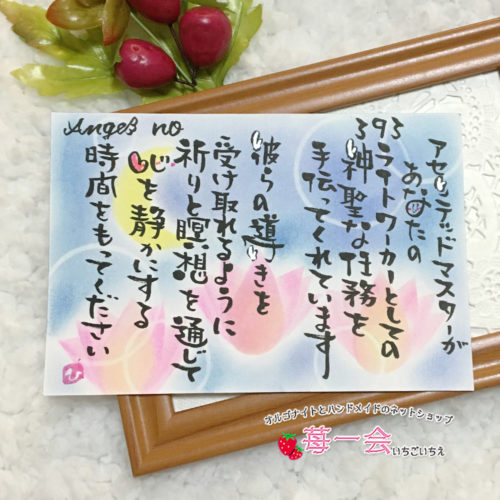 Angel no
393
アセンデッドマスターが
あなたの
ライトワーカーとしての
神聖な任務を
手伝ってくれています
彼らの導きを
受け取れるように
祈りと瞑想を通じて
心を静かにする
時間をもってください
ひ
オルゴナイトとハンドメイドのネットショップ
苺一会
いちごいちえ